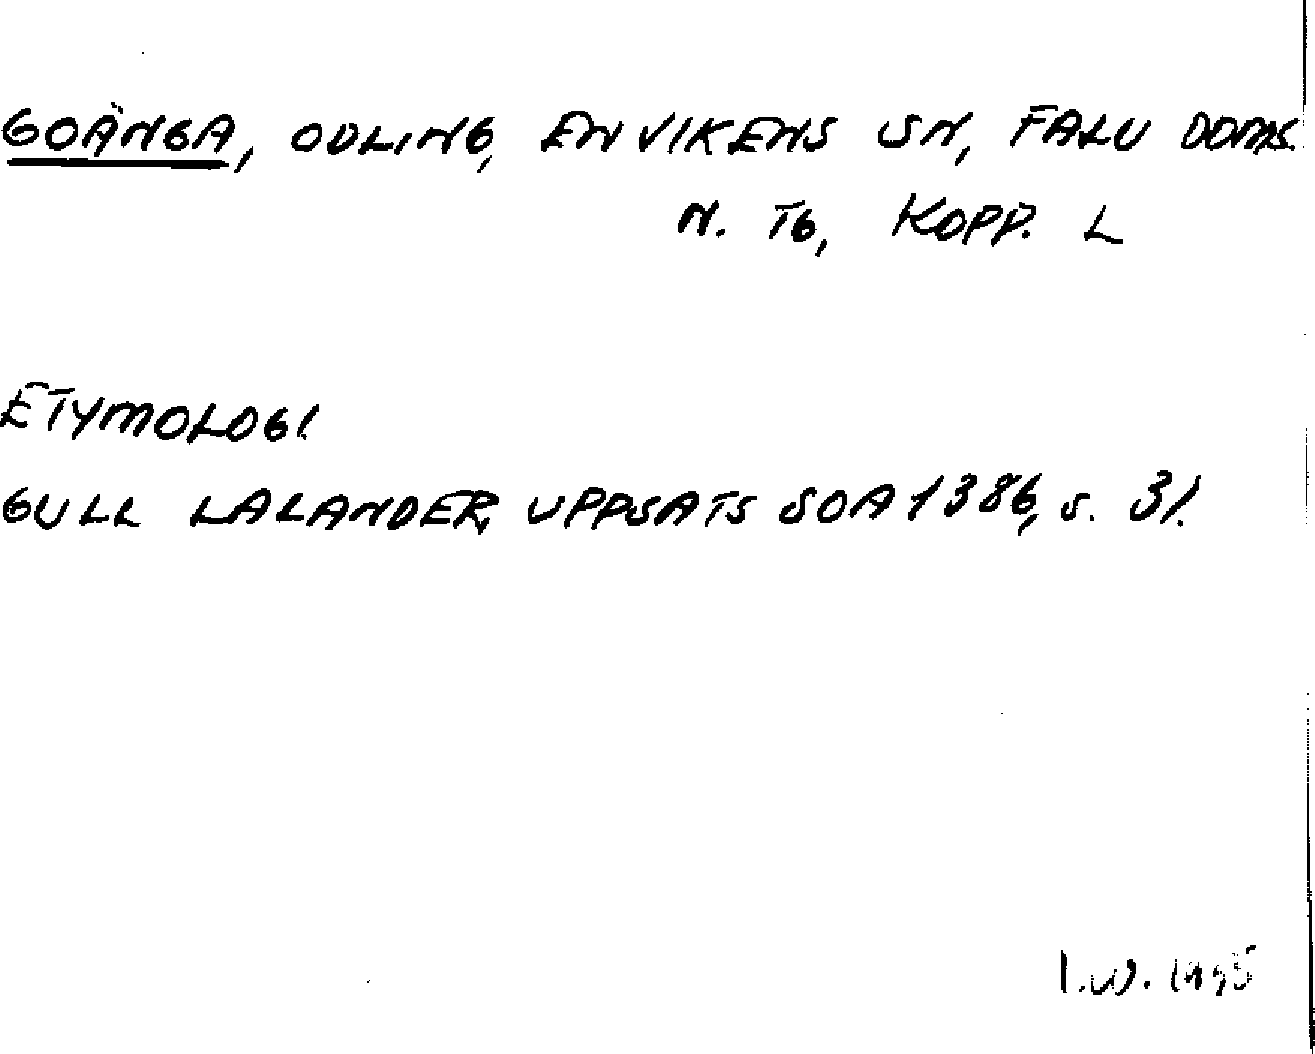 GOÄNGA, ODLING, ENVIKENS SN, FALU DOMS.
N. TG, KOPP. L
ETYMOLOGI
GULL LALANDER, UPPSATS SOA 1386, S. 31.
I.W. 1995